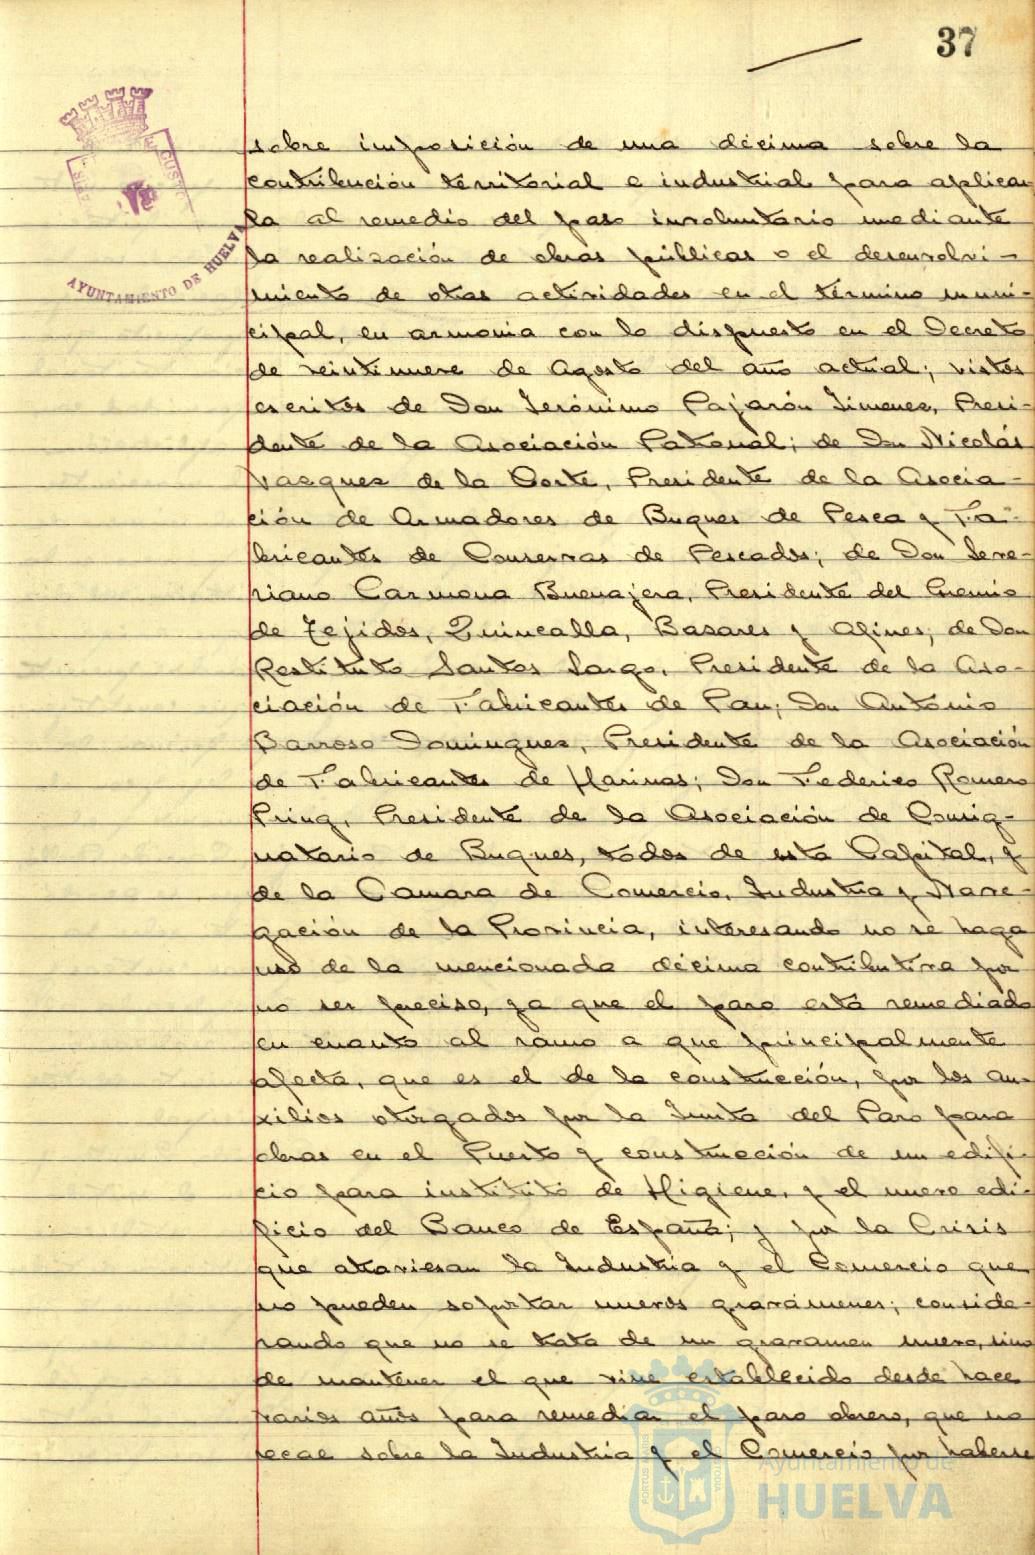 37
sobre imposición de una décima sobre la
contribución territorial e industrial para aplicar
la al remedio del paro involuntario mediante
la realización de obras públicas o el desenvolvi-
miento de otras actividades en el término muni-
cipal, en armonia con lo dispuesto en el Decreto
de veintinueve de Agosto del año actual; vistos
escritos de Don Jerónimo Pajarón Jimenez, Presi-
dente de la Asociación Patronal; de Don Nicolás
Vazquez de la Corte, Presidente de la Asocia-
ción de Armadores de Buques de Pesca y Fa-
bricantes de Conservas de Pescados; de Don Seve-
riano Carmona Buenajera, Presidente del Gremio
de Tejidos, Quincalla, Bazares y Afines; de Don
Restituto Santos Largo, Presidente de la Aso-
ciación de Fabricantes de Pan; Don Antonio
Barroso Dominguez, Presidente de la Asociación
de Fabricantes de Harinas; Don Federico Romero
Pring, Presidente de la Asociación de Consig-
natario de Buques, todos de esta Capital, y
de la Camara de Comercio, Industria y Nave-
gación de la Provincia, interesando no se haga
uso de la mencionada décima contributiva por
no ser preciso, ya que el paro está remediado
en cuanto al ramo a que principalmente
afecta, que es el de la construcción, por los au-
xilios otorgados por la Junta del Paro para
obras en el Puerto y construcción de un edifi-
cio para instituto de Higiene, y el nuevo edi-
ficio del Banco de España; y por la Crisis
que atraviesan la Industria y el Comercio que
no pueden soportar nuevos gravámenes; conside-
rando que no se trata de un gravamen nuevo, sino
de mantener el que vine establecido desde hace
varios años para remediar el paro obrero, que no
recae sobre la Industria y el Comercio por haberse
AYUNTAMIENTO DE HUELVA
Ayuntamiento de
HUELVA